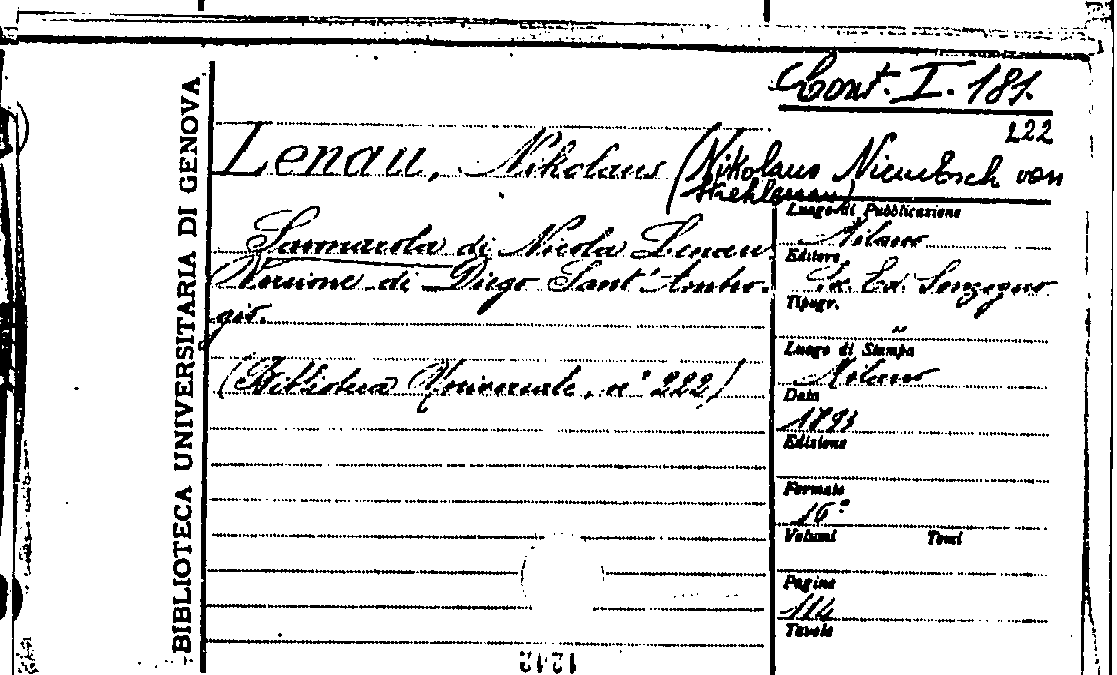 Cont. I. 181.
222
Lenau, Nikolaus (Nikolaus Niembsch von
Strehlenau)
Savonarola di Nicola Lenau.
Versione di Diego Sant'Ambro-
gio.
(Biblioteca Universale, n° 222)
Luogo di Pubblicazione
Milano
Editore
So. Ed. Sonzogno
Tipogr.
"
Luogo di Stampa
Milano
Data
1893
Edizione
Formato
16°
Volumi Tomi
Pagine
114
Tavole
BIBLIOTECA UNIVERSITARIA DI GENOVA
1242